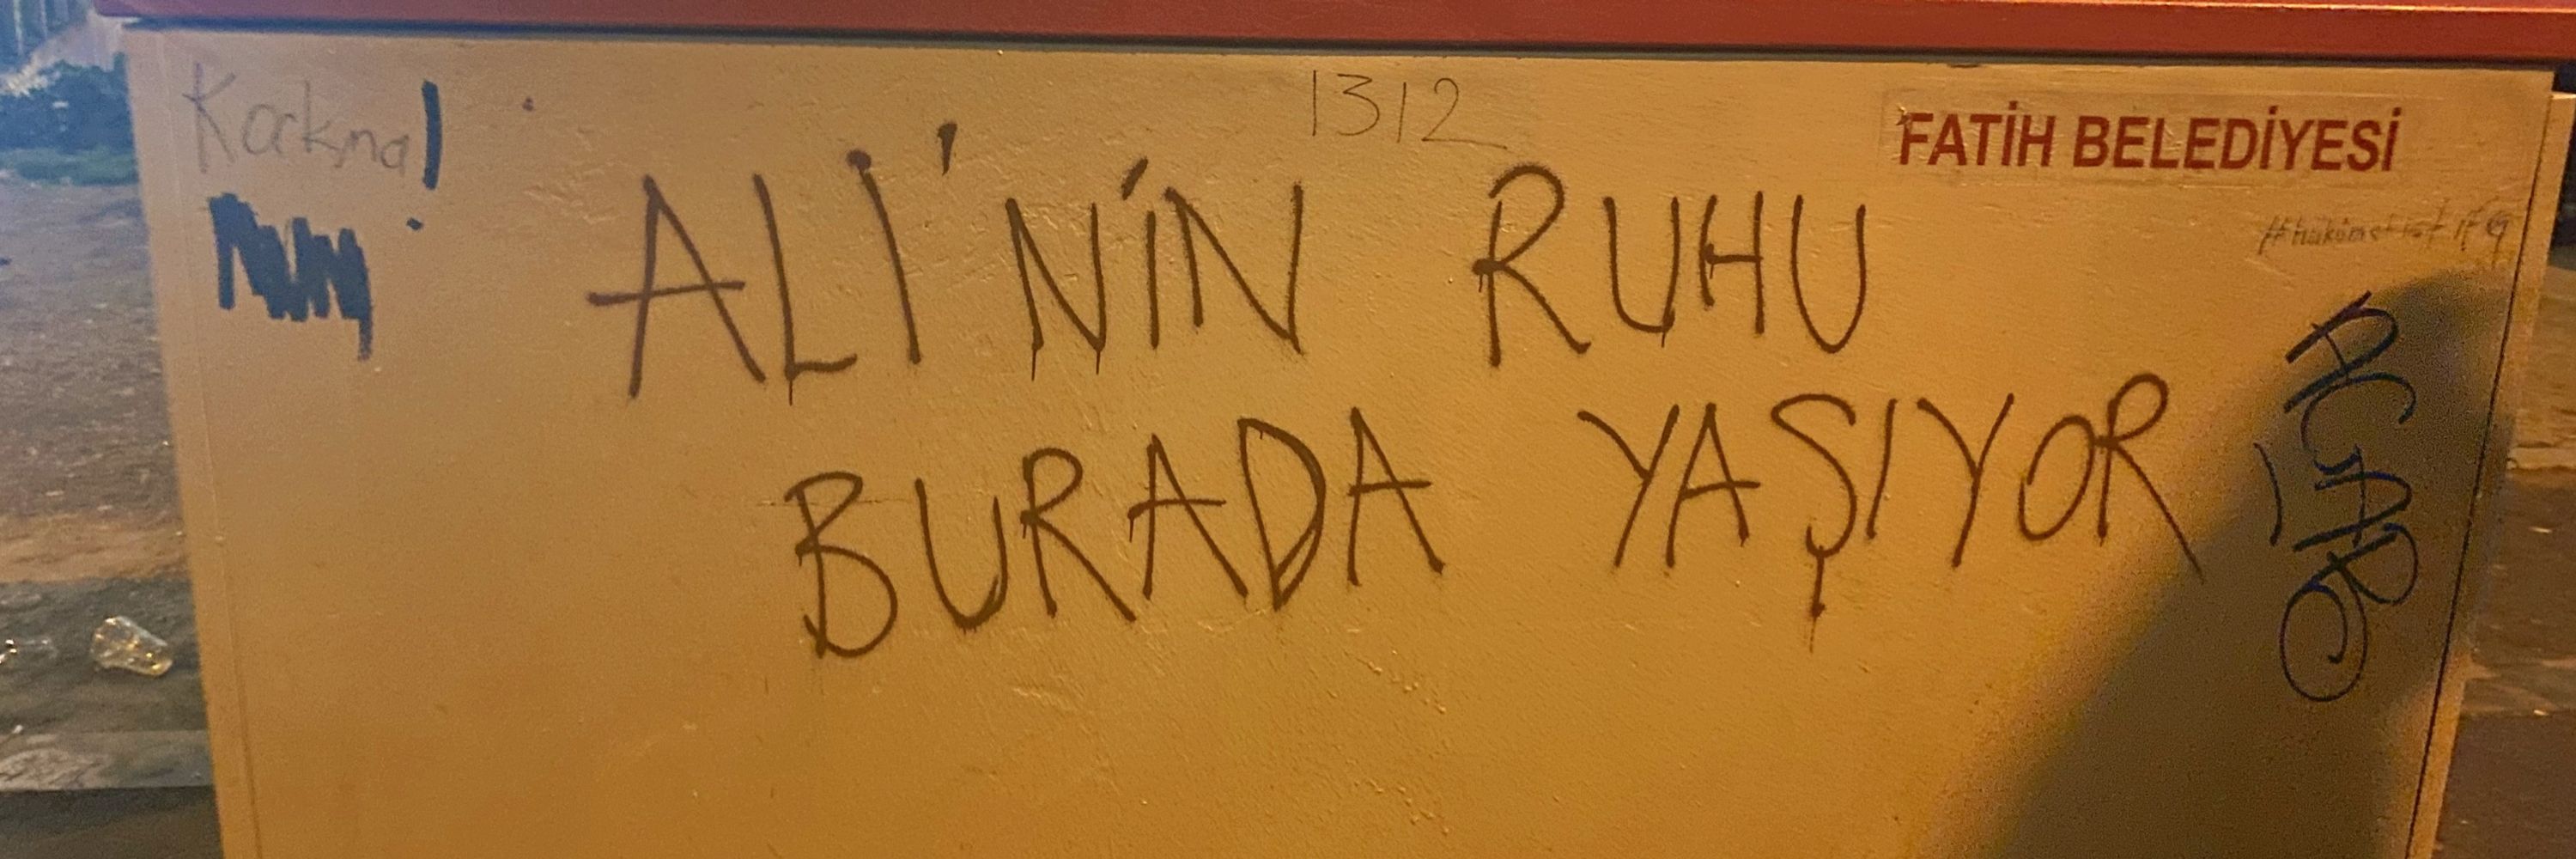 Korkma!
1312
FATİH BELEDİYESİ
ALİ'NİN RUHU
BURADA YAŞIYOR